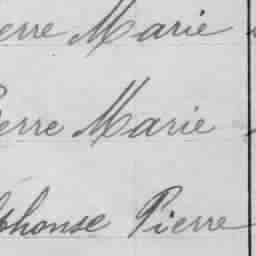 erre Marie
ierre Marie
lphonse Pierre